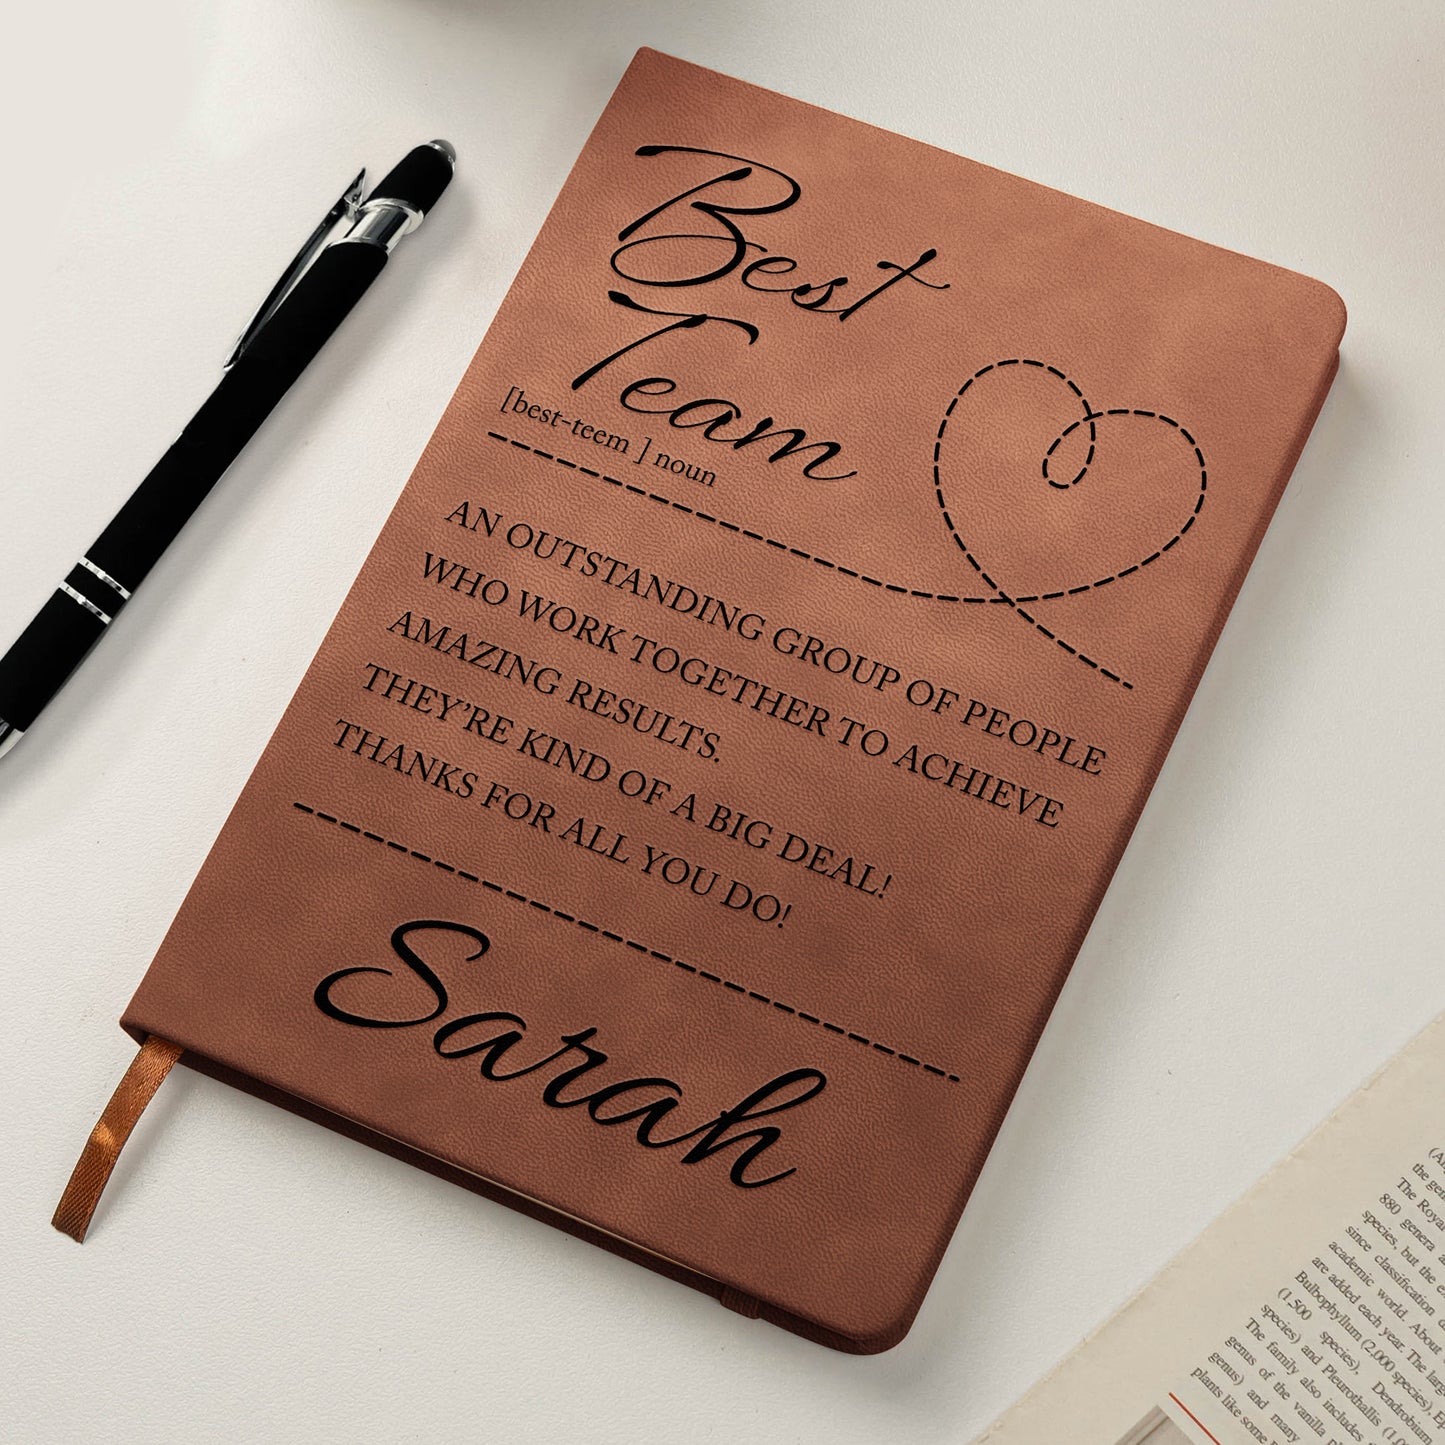 Best
Team
[best-teem ] noun
AN OUTSTANDING GROUP OF PEOPLE
WHO WORK TOGETHER TO ACHIEVE
AMAZING RESULTS.
THEY’RE KIND OF A BIG DEAL!
THANKS FOR ALL YOU DO!
Sarah
the gen
The Royal
880 genera a
species, but the e
since classification
academic world. About
are added each year. The larg
Bulbophyllum (2,000 species), Ep
(1,500 species), Dendrobium
species) and Pleurothallis (1,
The family also includes
genus of the vanilla
genus) and many
plants like some